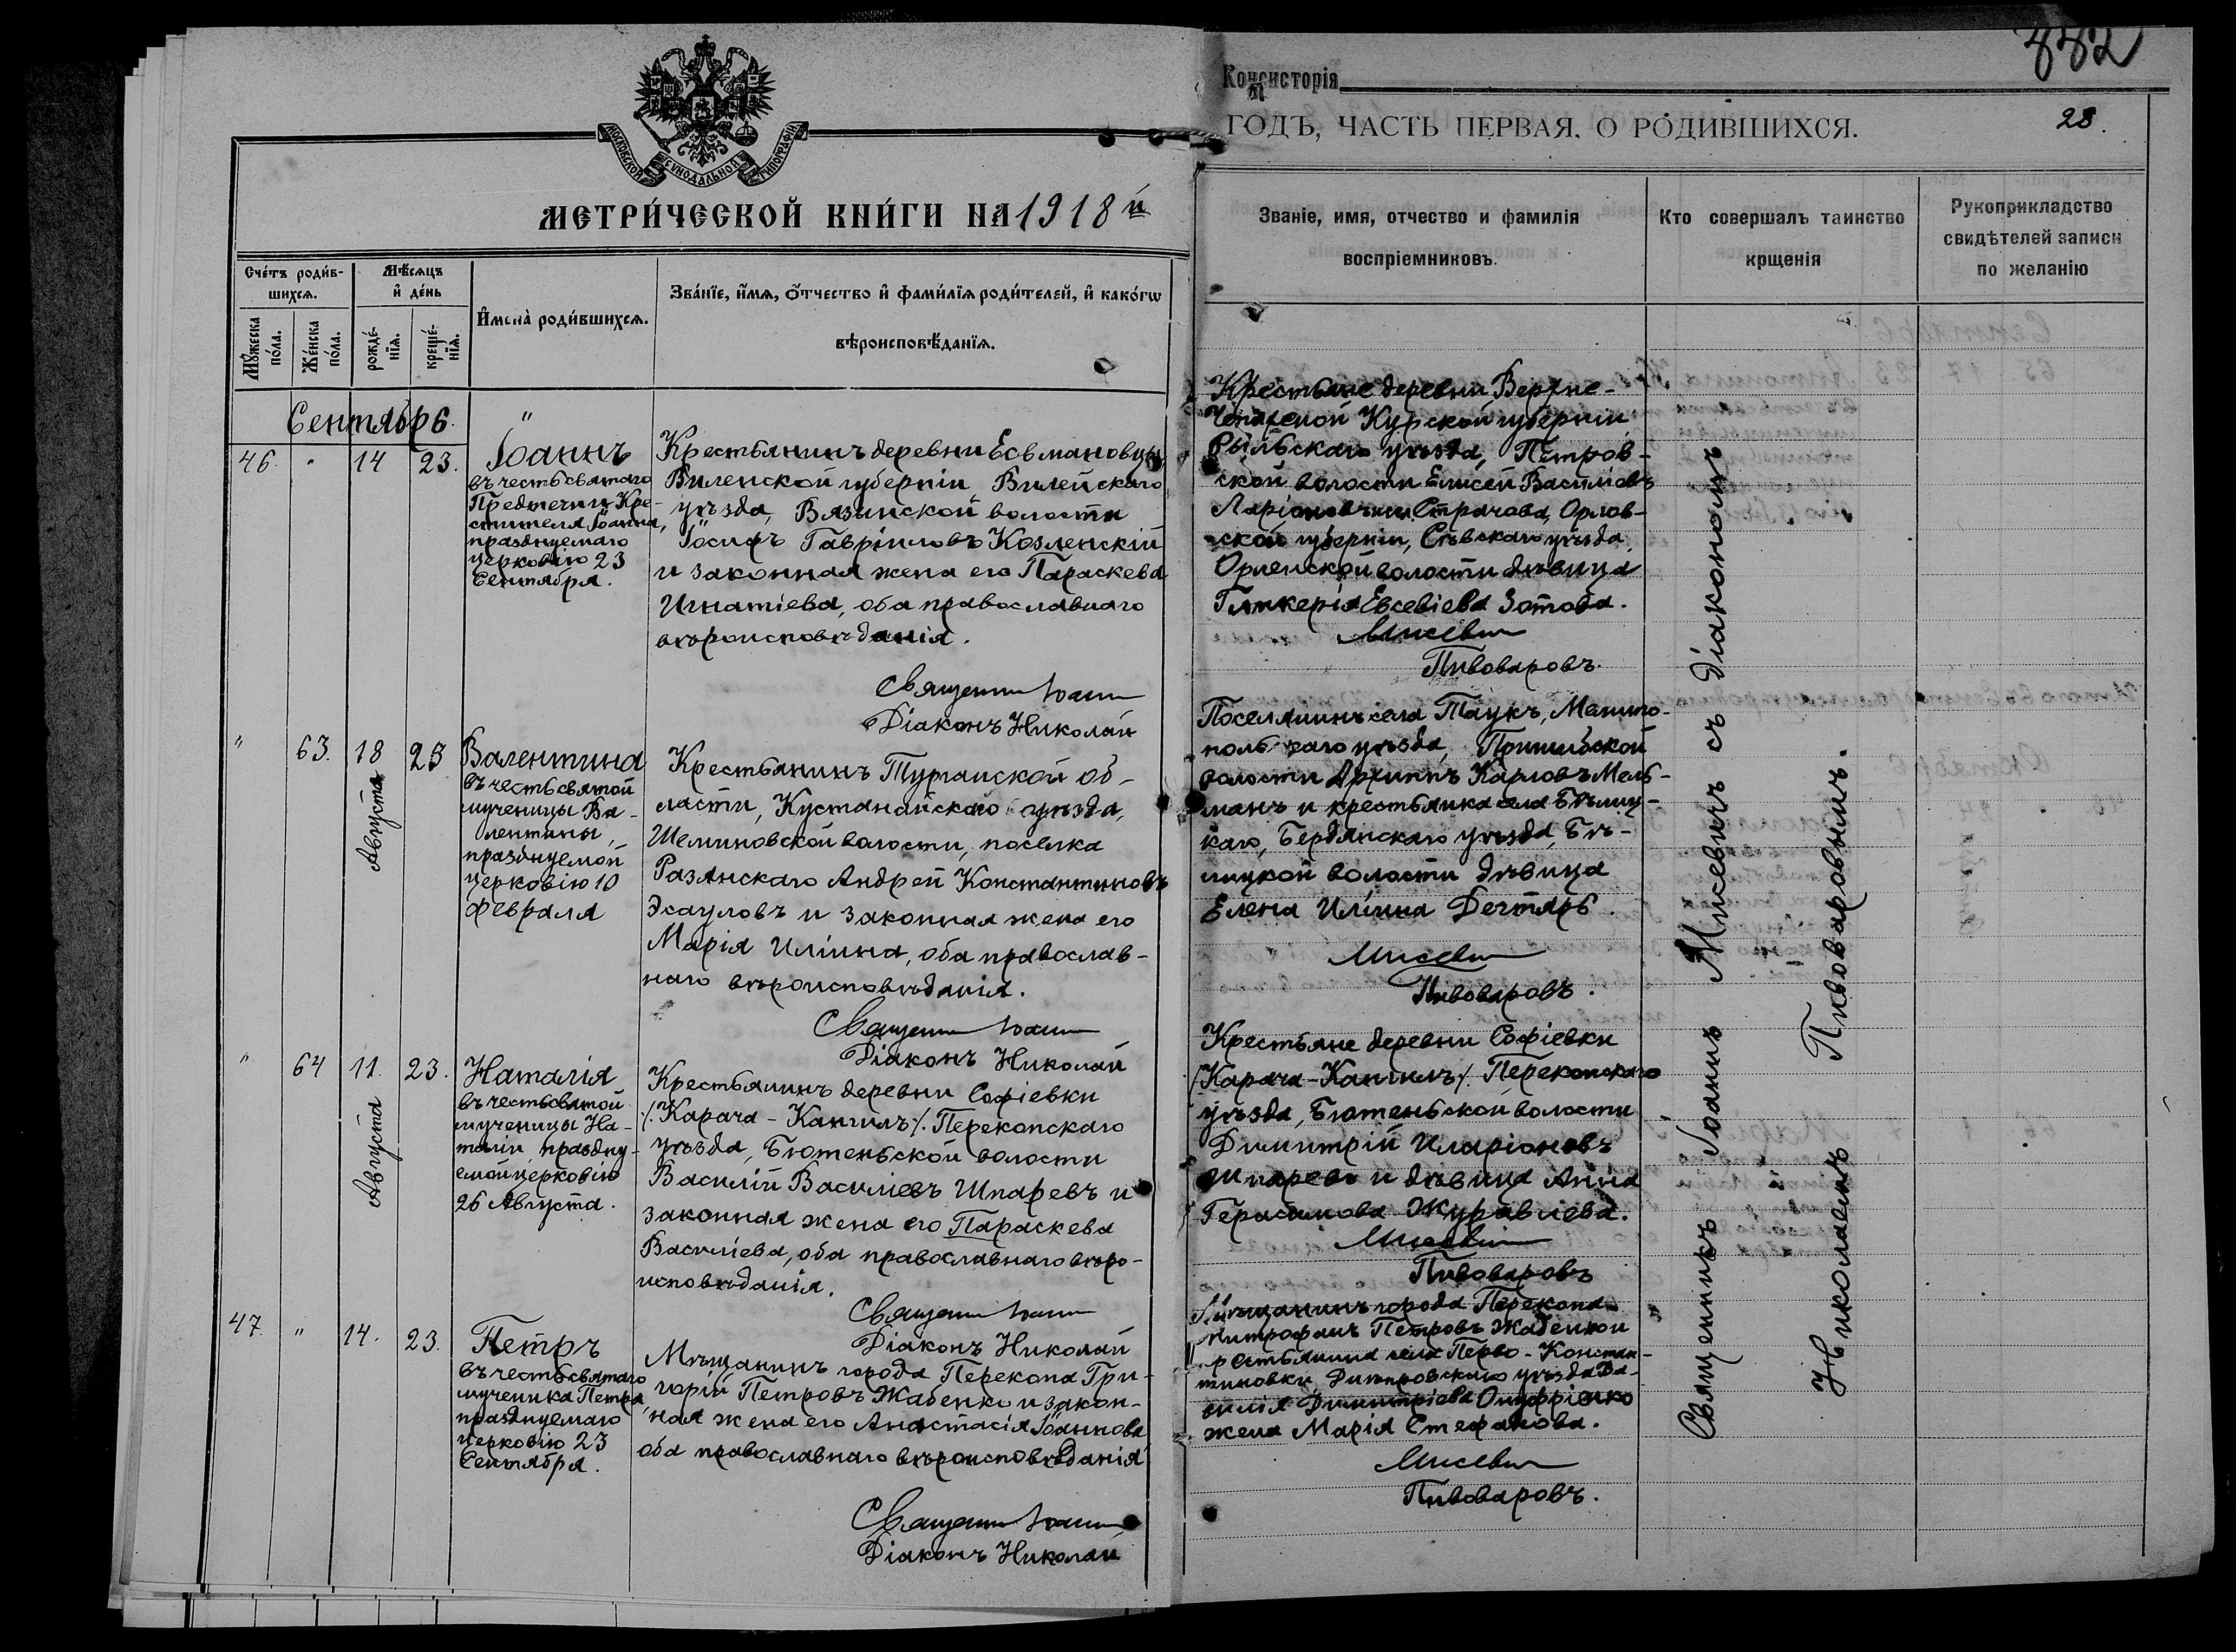 МОСКОВСКОЙ СѴНОДАЛЬНОЙ ТИПОГРАФІИ
МЕТРИ́ЧЕСКОЙ КНИ́ГИ НА 1918 й
Сче́тъ роди́в-
шихсѧ.
Мѣ́сѧцъ
и҆ де́нь
И҆мена̀ роди́вшихсѧ.
Зва́нїе, и҆́мѧ, ѻ҆́тчество и҆ фами́лїѧ роди́телей, и҆ како́гѡ
вѣроисповѣ́данїѧ.
Мꙋ́жеска
по́ла.
Же́нска
по́ла.
рожде́-
нїѧ.
креще́-
нїѧ.
Сентябрь.
46. " 14 23.
Іоаннъ
въ честь святаго
Предтечи и Кре-
стителя Іоанна,
празднуемаго
церковію 23
Сентября.
Крестьянинъ деревни Есьмановцы,
Виленской губерніи Вилейскаго
уѣзда, Вязинской волости
Іосифъ Гавріиловъ Козленскій
и законная жена его Параскева
Игнатіева, оба православнаго
вѣроисповѣданія.
Священникъ Іоаннъ
Діаконъ Николай
" 63. 18 23
Августа
Валентина
въ честь святой
мученицы Ва-
лентины,
празднуемой
церковію 10
февраля
Крестьянинъ Тургайской об-
ласти, Кустанайскаго уѣзда,
Шеминовской волости, поселка
Разанскаго Андрей Константиновъ
Эсауловъ и законная жена его
Марія Иліина, оба православ-
наго вѣроисповѣданія.
Священникъ Іоаннъ
Діаконъ Николай
" 64 11. 23.
Августа
Наталія
въ честь святой
мученицы На-
таліи, праздну-
емой церковію
26 Августа.
Крестьянинъ деревни Софіевки
/. Карача-Кангилъ /. Перекопскаго
уѣзда, Бютеньской волости
Василій Василіевъ Шпаревъ и
законная жена его Параскева
Василіева, оба православнаго вѣро-
исповѣданія.
Священникъ Іоаннъ
Діаконъ Николай
47. " 14. 23.
Петръ
въ честь святаго
мученика Петра,
празднуемаго
церковію 23
Сентября.
Мѣщанинъ города Перекопа Гри-
горій Петровъ Жабенко и закон-
ная жена его Анастасія Іоаннова
оба православнаго вѣроисповѣданія
Священникъ Іоаннъ
Діаконъ Николай
882
Консисторія
ГОДЪ, ЧАСТЬ ПЕРВАЯ, О РОДИВШИХСЯ.
28.
Званіе, имя, отчество и фамилія
воспріемниковъ.
Кто совершалъ таинство
крщенія
Рукоприкладство
свидѣтелей записи
по желанію
Крестьяне деревни Верхне-
Курской губерніи
Рыльскаго уѣзда, Петров-
ской волости Елисей Василіевъ
Страчова, Орлов-
ской губерніи, Сѣвскаго уѣзда,
Орленской волости дѣвица
Гликерія Евсевіева Зотова.
Мисевич
Пивоваровъ.
Поселянинъ села Таукъ, Мелито-
польскаго уѣзда, Пришибской
волости Архипъ Карловъ Мель-
манъ и крестьянка села Бѣлиц-
каго, Бердянскаго уѣзда, Бѣ-
лицкой волости дѣвица
Елена Иліина Дегтярь.
Мисевич
Пивоваровъ.
Крестьяне деревни Софіевки
/Карача-Кангилъ/. Перекопскаго
уѣзда, Бютеньской волости
Димитрій Иларіоновъ
Шпаревъ и дѣвица Анна
Герасимова Журавлева.
Мисевич
Пивоваровъ
Мѣщанинъ города Перекопа
Митрофанъ Петровъ Жабенко и
крестьянина села Перво-Констан-
тиновки Днѣпровскаго уѣзда Да-
ніила Димитріева Онуфріенко
жена Марія Стефанова.
Мисевич
Пивоваровъ.
Священникъ Іоаннъ Мисевичъ съ діакономъ
Николаемъ Пивоваровымъ.